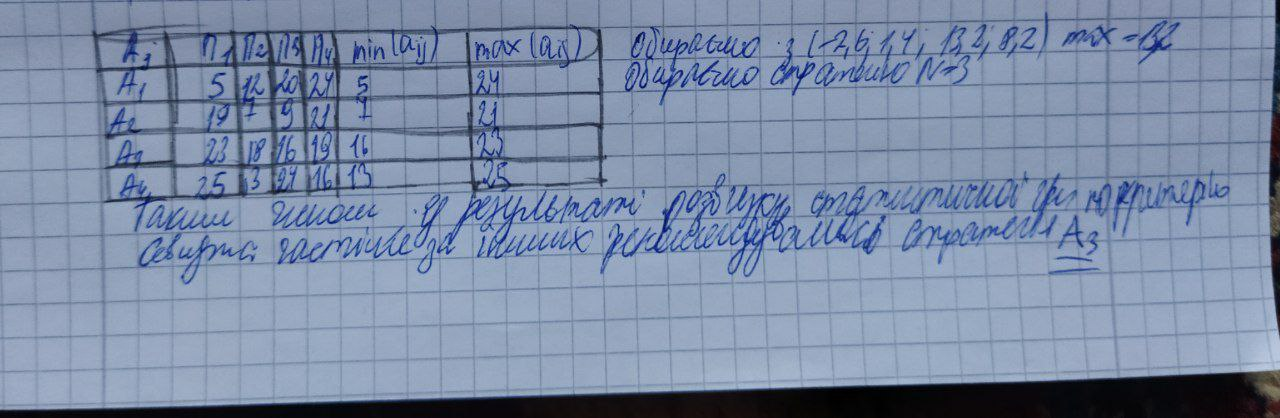 Aj П1 П2 П3 П4 min (aij) max (aij)
A1 5 12 20 24 5 24
A2 19 7 9 21 7 21
A3 23 18 16 19 16 23
A4 25 13 24 16 13 25
Обираємо з (-2,6; 1,4; 13,2; 8,2) max = 13,2
Обираємо стратегію N=3
Таким чином, в результаті розв'язку статистичної гри по критерію
Севіджа частіше за інших рекомендувалась стратегія A3